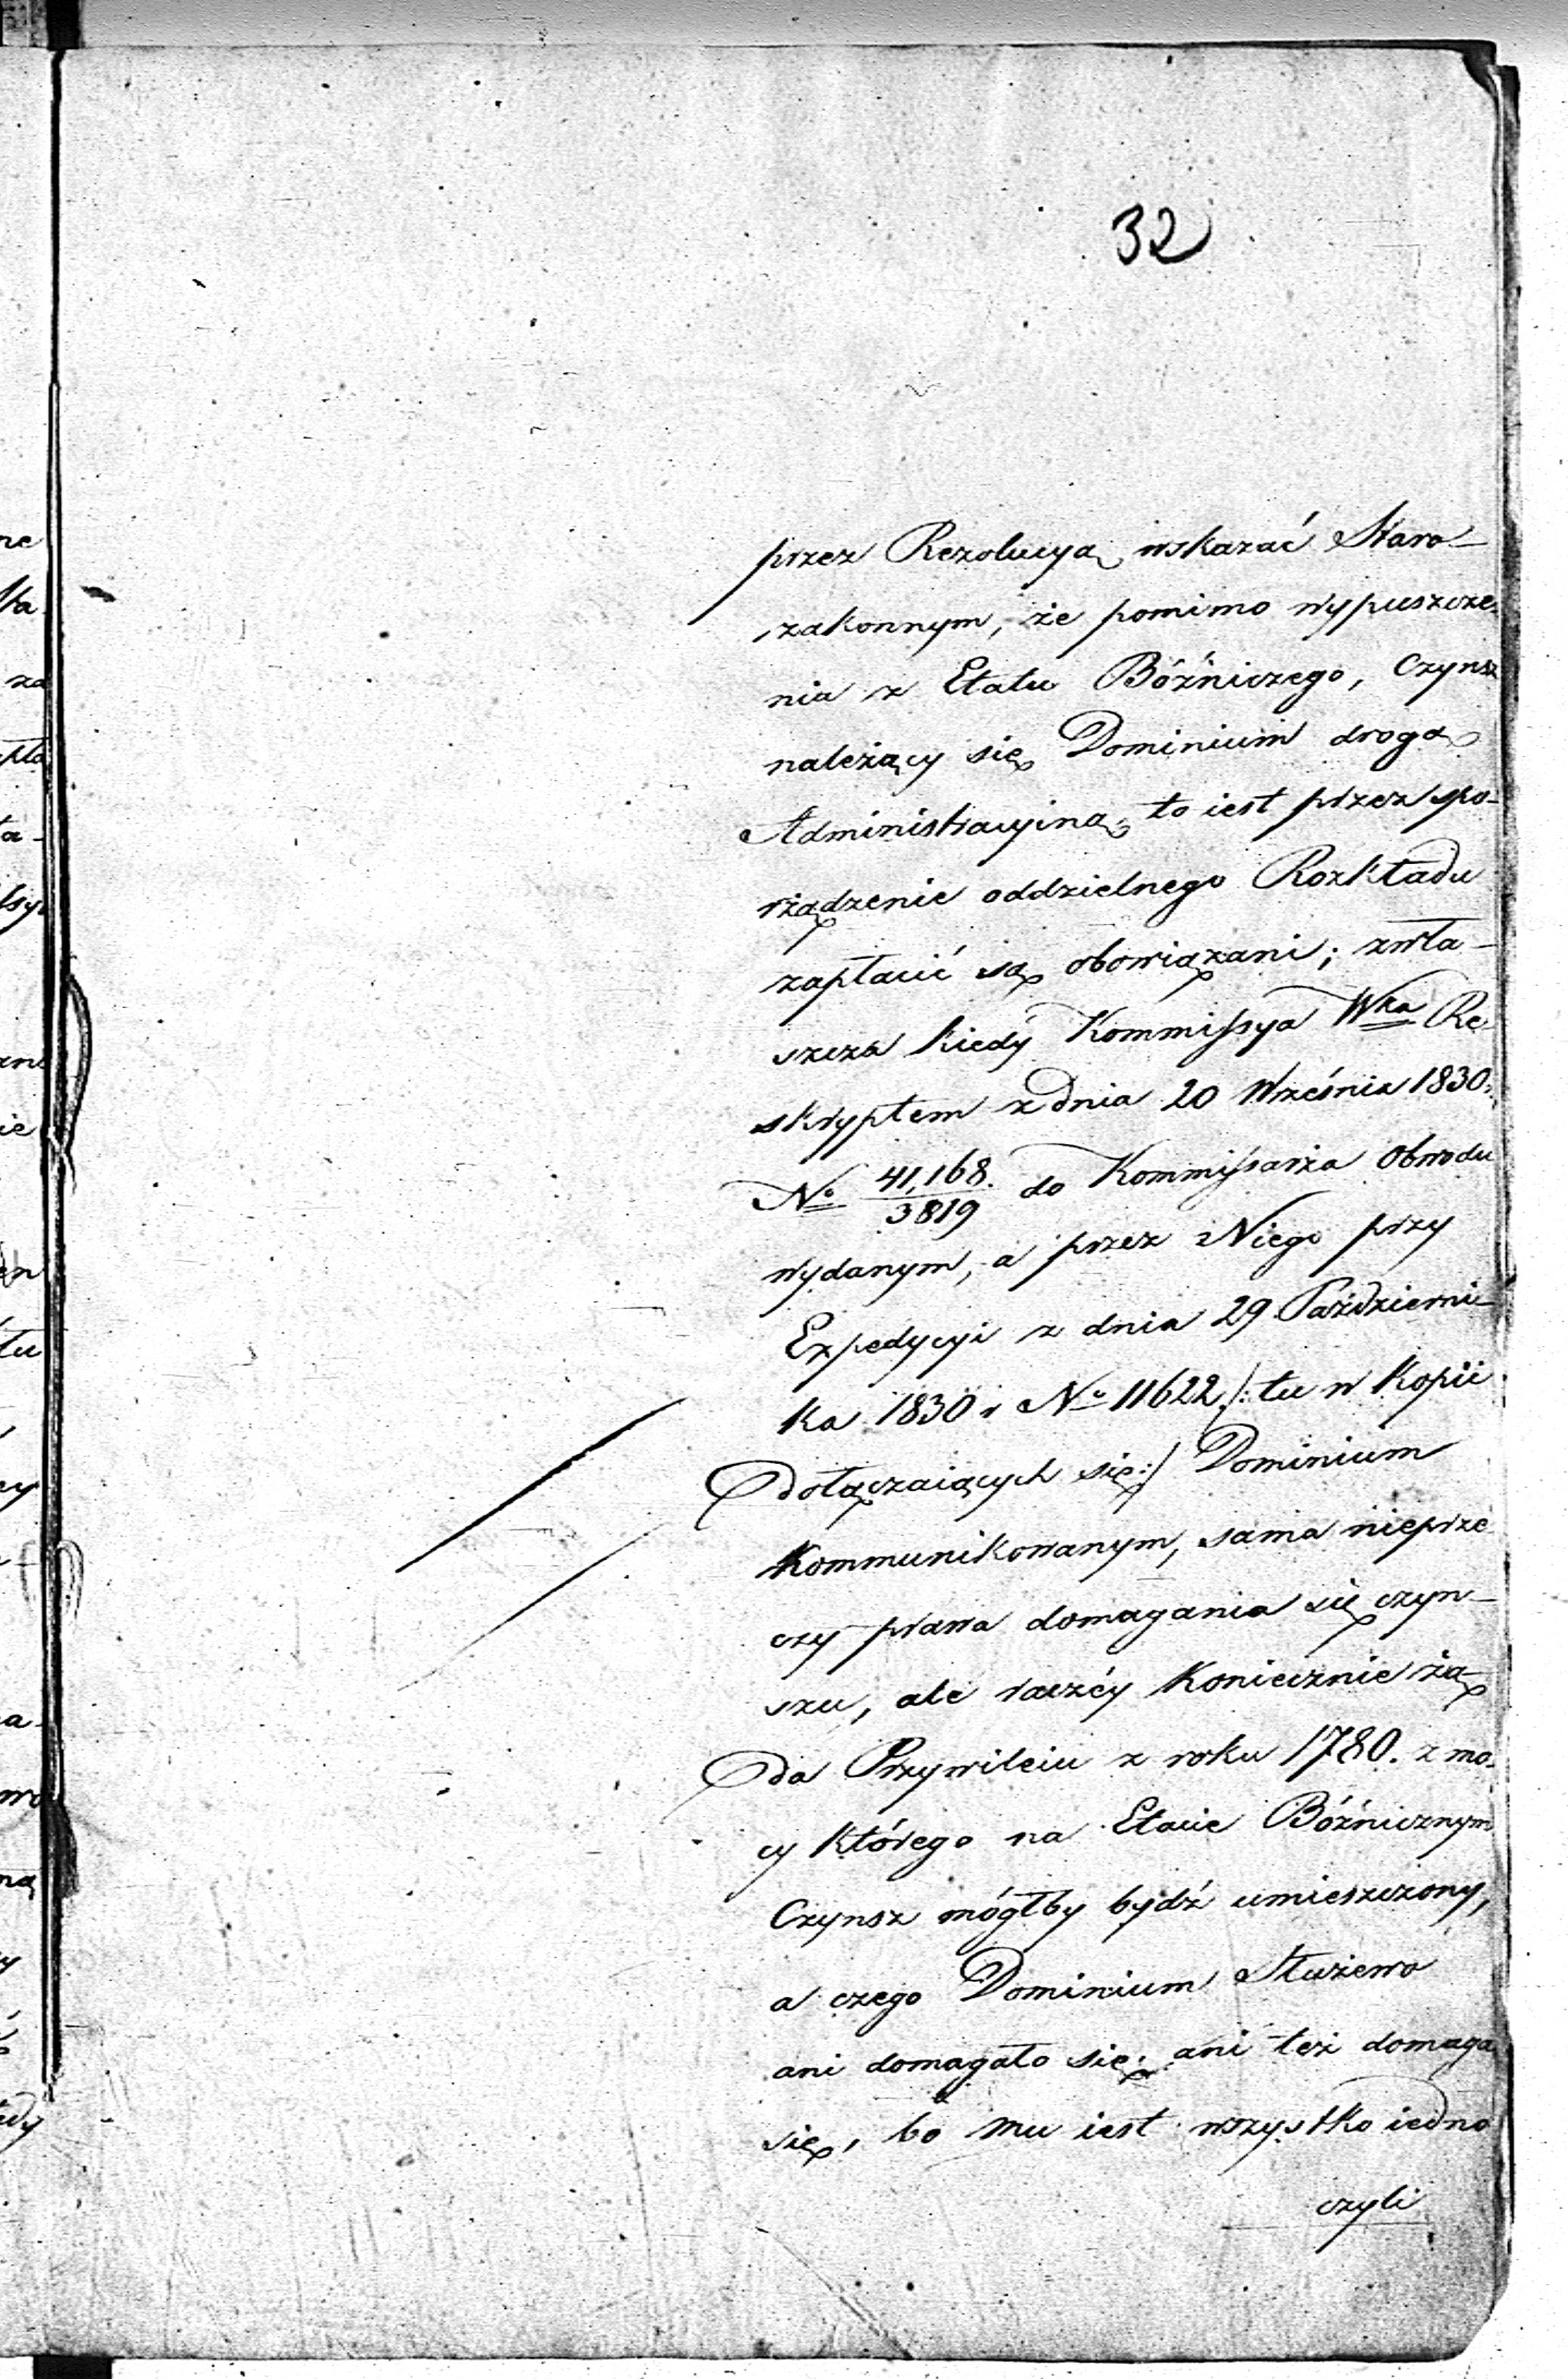 32
przez Rezolucyą wskazać Staro-
zakonnym, że pomimo wypuszcze-
nia z Etatu Bóźniczego, Czynsz
należący się Dominium drogą
Administracyiną, to iest przez spo-
rządzenie oddzielnego Rozkładu
zapłacić są obowiązani; zwła-
szcza kiedy Kommissya Wka Re-
skryptem z dnia 20 Września 1830.
No 41,168./3819 do Kommissarza Obwodu
wydanym, a przez Niego przy
Expedycyi z dnia 29 Październi-
ka 1830 r No 11622 /: tu w Kopii
dołączaiących się :/ Dominium
Kommunikowanym, sama nieprze
czy prawa domagania się czyn-
szu, ale raczéy Koniecznie żą-
da Przywileiu z roku 1780. z mo-
cy którego na Etacie Bóźnicznym
Czynsz mógłby bydź umieszczony,
a czego Dominium Służewo
ani domagało się, ani też domaga
się, bo mu iest wszystko iedno
czyli
ne
sta
za
ta-
zn
ie
en
tu
cy
a-
wo
ną
y